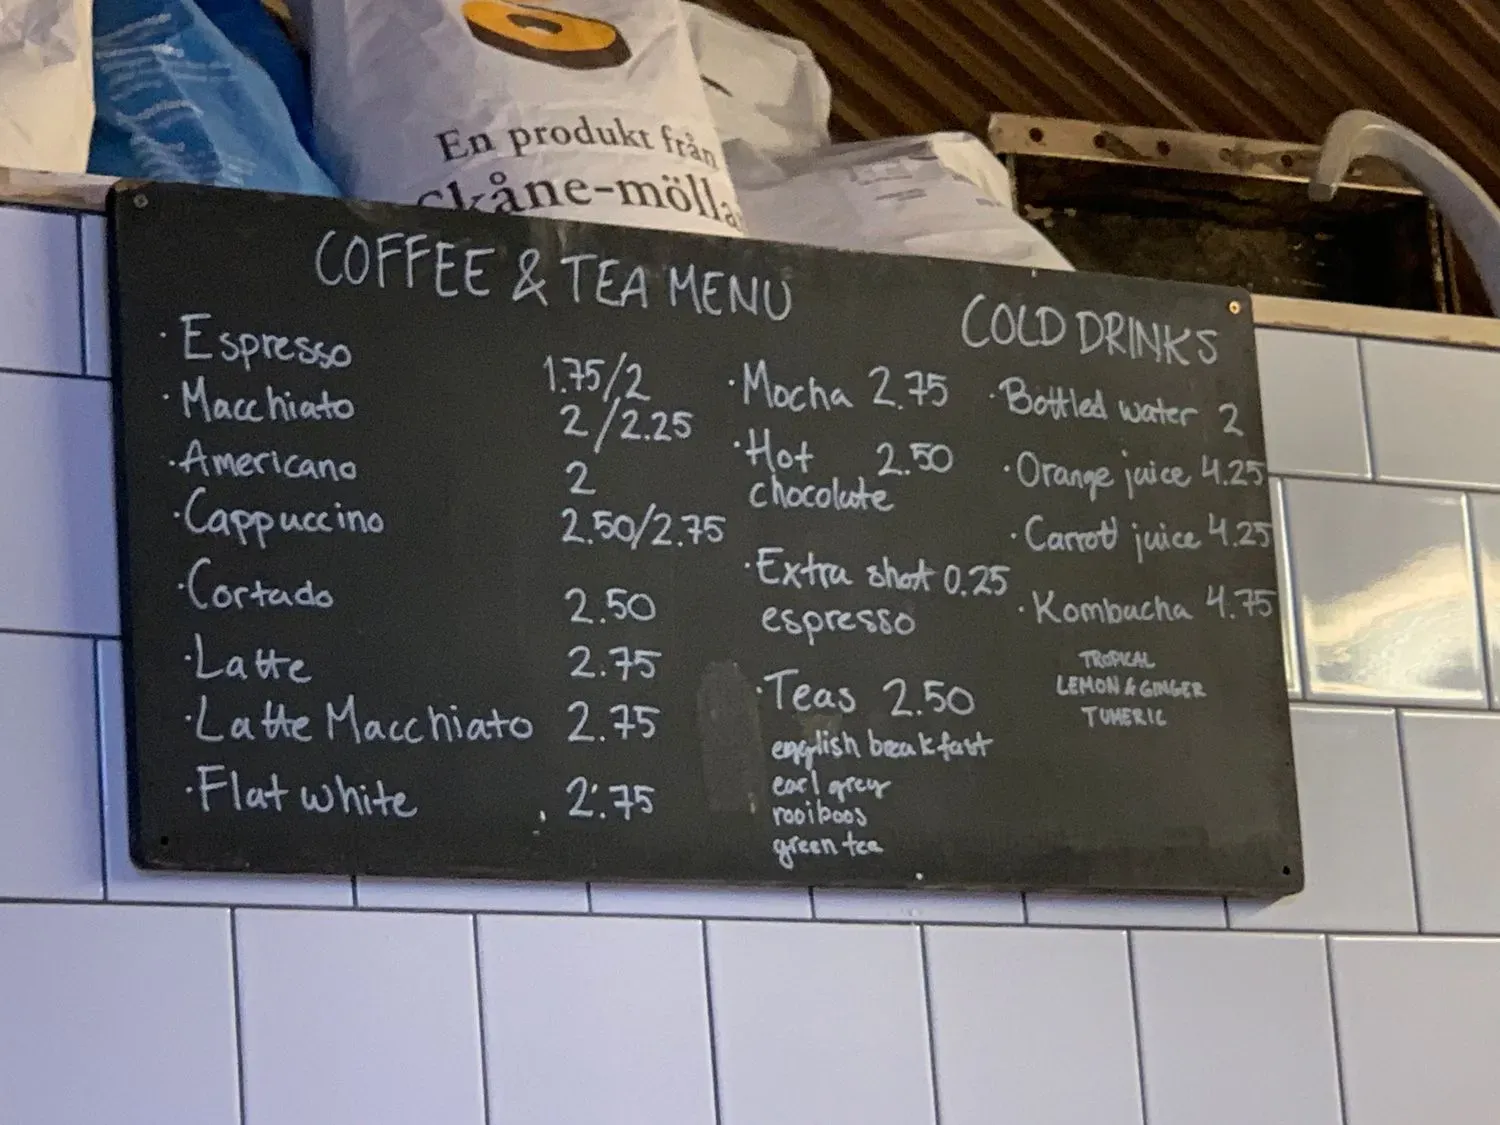 En produkt från
Skåne-mölla
COFFEE & TEA MENU
· Espresso 1.75/2
· Macchiato 2/2.25
· Americano 2
· Cappuccino 2.50/2.75
· Cortado 2.50
· Latte 2.75
· Latte Macchiato 2.75
· Flat white 2.75
· Mocha 2.75
· Hot 2.50
chocolate
· Extra shot 0.25
espresso
· Teas 2.50
english breakfast
earl grey
rooiboos
green tea
COLD DRINKS
· Bottled water 2
· Orange juice 4.25
· Carrot juice 4.25
· Kombucha 4.75
TROPICAL
LEMON & GINGER
TUMERIC